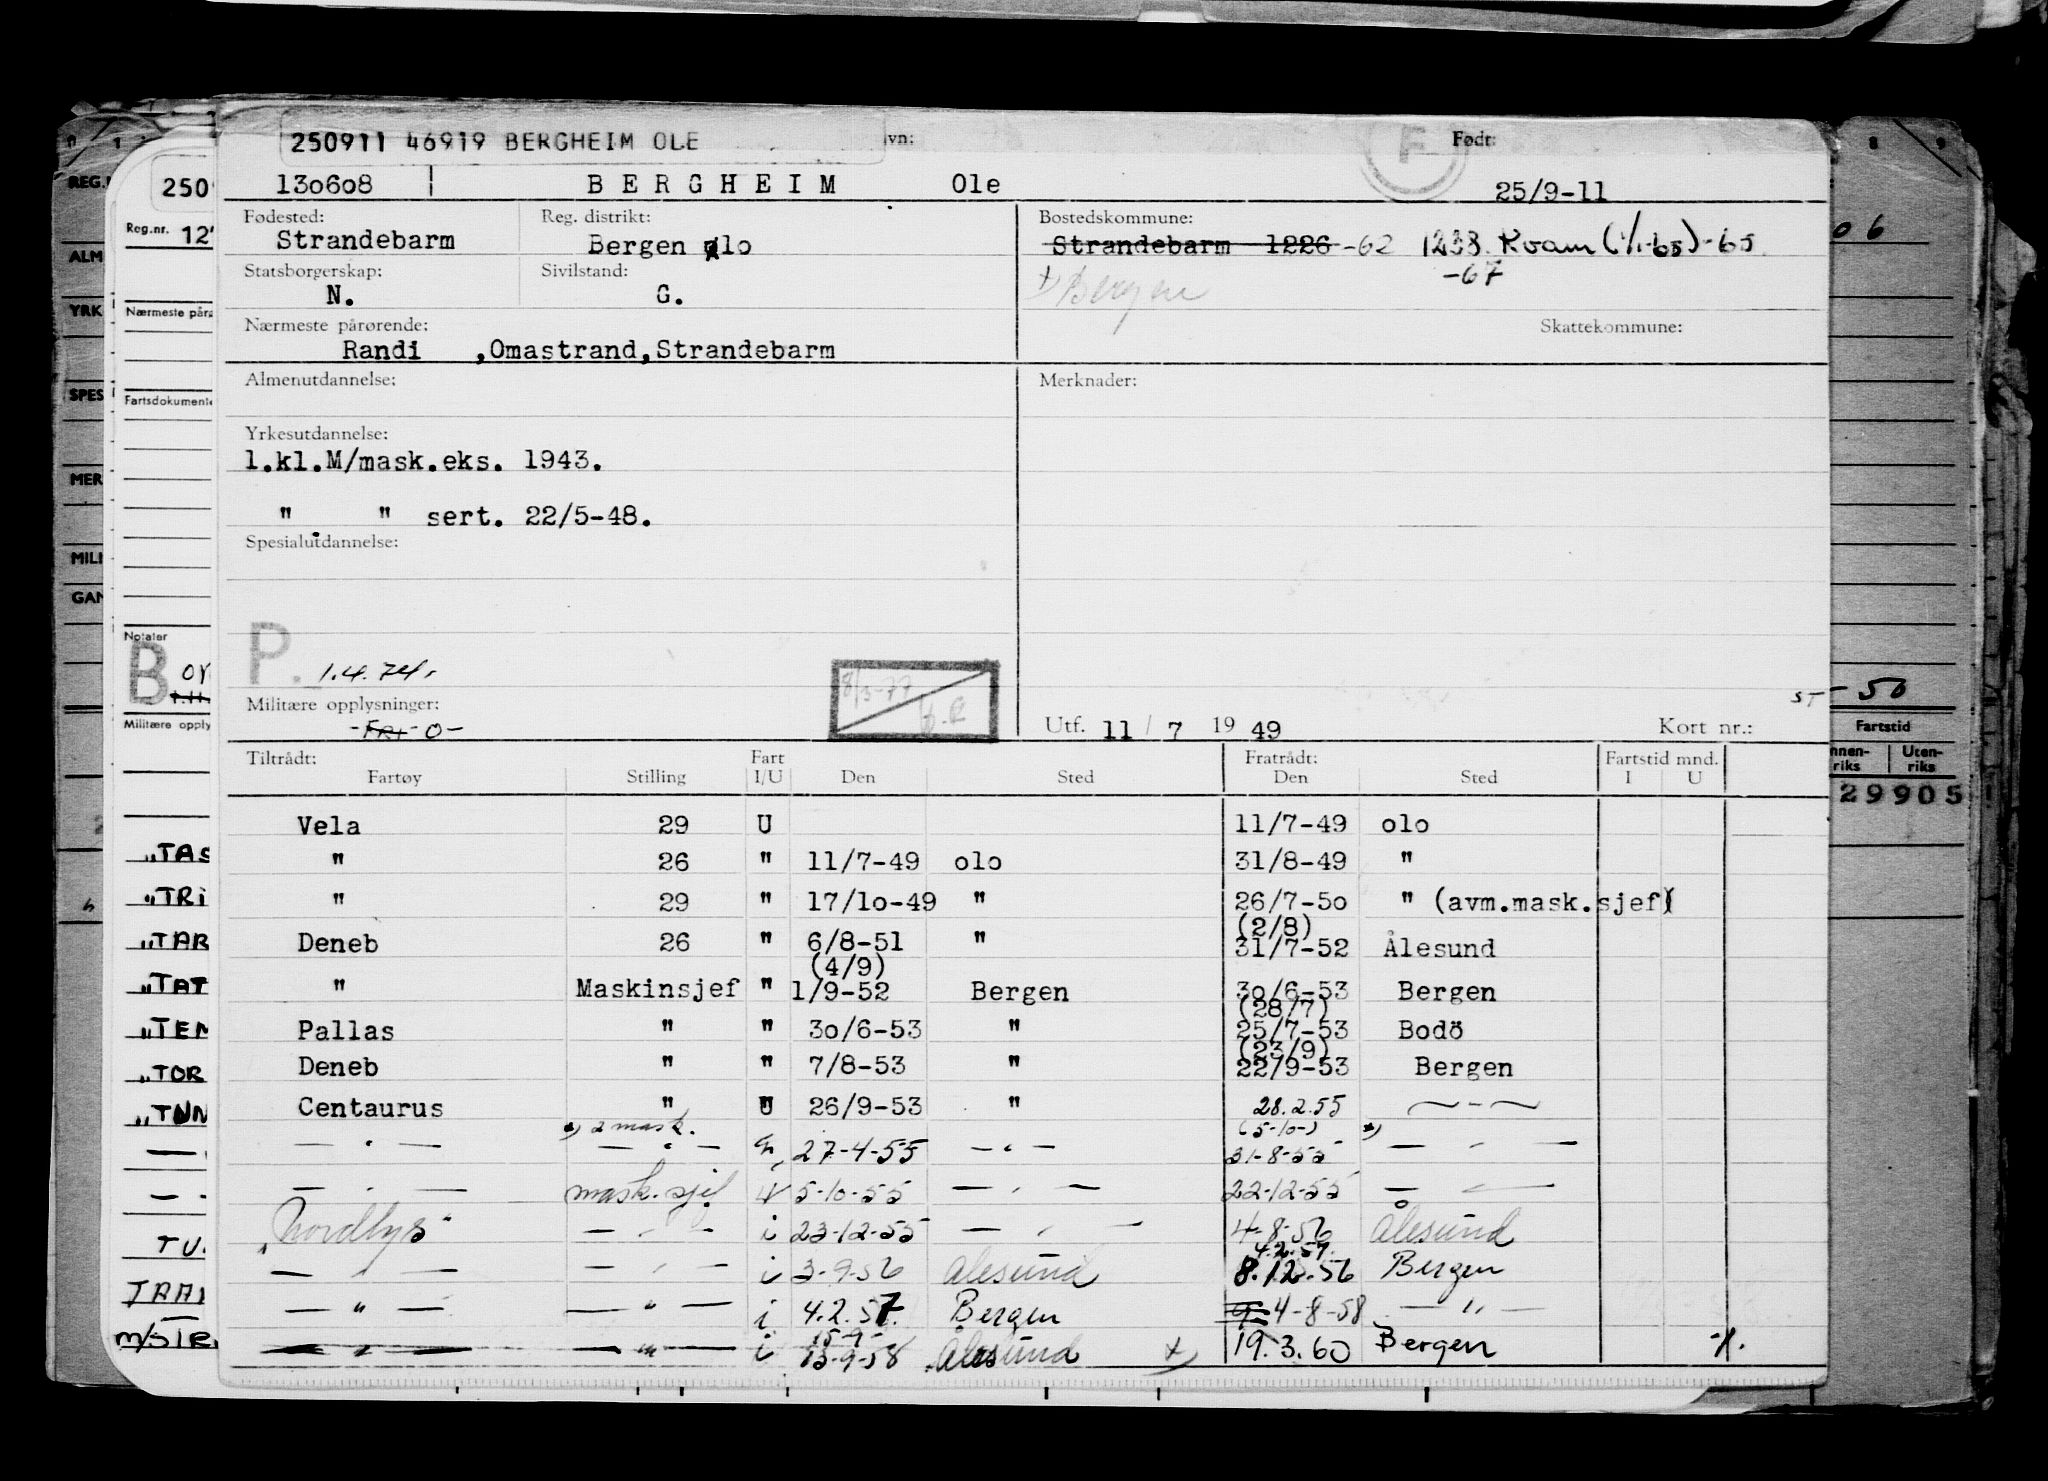 250911 46919 BERGHEIM OLE vn: F Født:
130608 BERGHEIM Ole 25/9-11
Fødested: Reg. distrikt: Bostedskommune:
Strandebarm Bergen olo Strandebarm 1226 -62 1238 Kvam (1/1-65) -65
-67
Statsborgerskap: Sivilstand:
N. G. x) Bergen
Nærmeste pårørende: Skattekommune:
Randi ,Omastrand,Strandebarm
Almenutdannelse: Merknader:
Yrkesutdannelse:
1.kl.M/mask.eks. 1943.
" " sert. 22/5-48.
Spesialutdannelse:
P. 1.4.74.
8/3-77
Militære opplysninger:
-FRI- O- Utf. 11 / 7 19 49 Kort nr.:
Tiltrådt: Fart Fratrådt: Fartstid mnd.
Fartøy Stilling I/U Den Sted Den Sted I U
Vela 29 U 11/7-49 olo
" 26 " 11/7-49 olo 31/8-49 "
" 29 " 17/10-49 " 26/7-50 " (avm.mask.sjef)
(2/8)
Deneb 26 " 6/8-51 " 31/7-52 Ålesund
(4/9)
" Maskinsjef " 1/9-52 Bergen 30/6-53 Bergen
(28/7)
Pallas " " 30/6-53 " 25/7-53 Bodö
(23/9)
Deneb " " 7/8-53 " 22/9-53 Bergen
Centaurus " U 26/9-53 " 28.2.55 — " —
x) 2 mask. (5-10-) x)
— " — — " — " 27-4-55 — " — 31-8-55 — " —
— " — mask.sjef U 5-10-55 — " — 22-12-55 — " —
"Nordlys" — " — i 23-12-55 — " — 4-8-56 Ålesund
4.2.57.
— " — — " — i 3-9-56 Ålesund 8.12.56 Bergen
— " — — " — i 4.2.57. Bergen 4-8-58 — " —
15-9-
— " — — " — i 13-9-58 Ålesund x) 19.3.60 Bergen
REG.
ALM
YRK
SPES
MER
MILI
GAN
250
Reg.nr. 12
Nærmeste påra
Fartsdokumente
Notater
B
Militære opply
"TAS
"TRI
"TAR
"TAT
"TEN
"TOR
"TUN
TU
TRAN
M/S TR
0 1
8 9
06
ST - 50
Fartstid
nnen-riks Uten-riks
29905